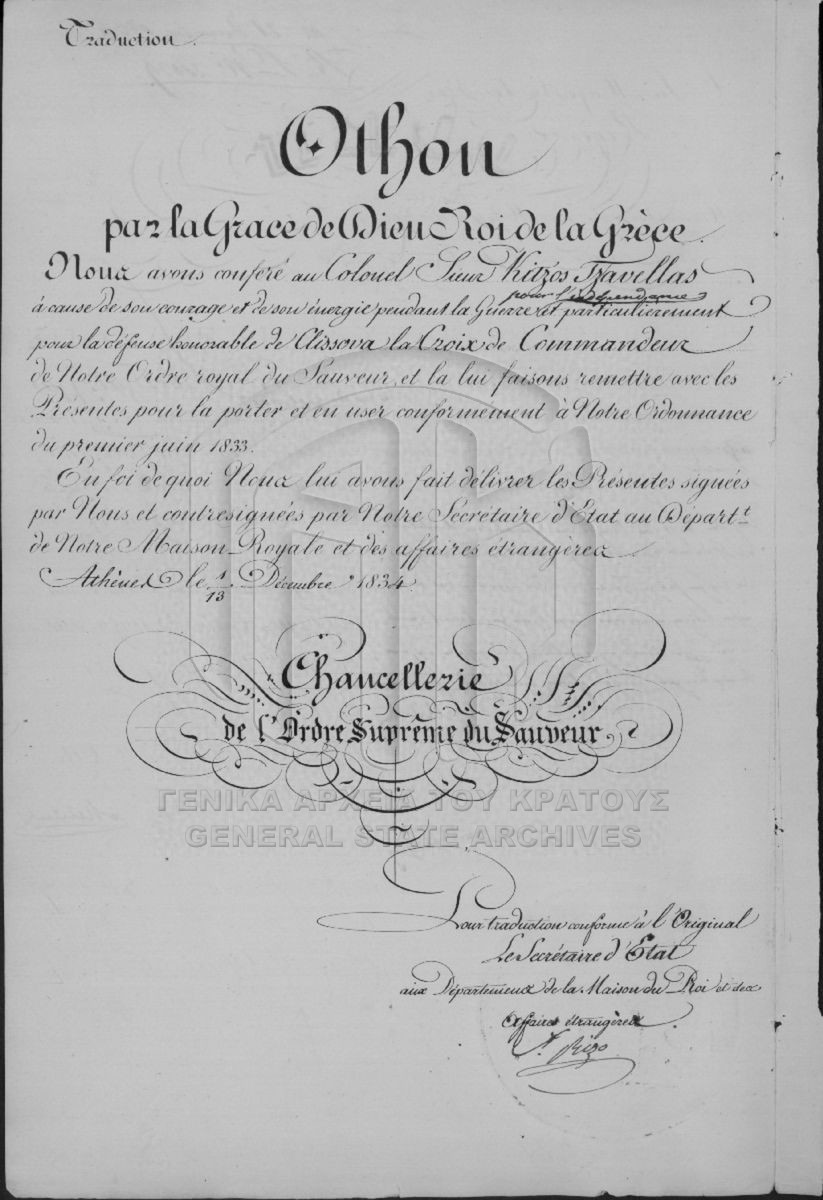 Traduction.
Othon
par la Grace de Dieu Roi de la Grèce.
Nous avons conféré au Colonel Sieur Kitzos Tzavellas
pour l'indépendance
à cause de son courage et de son énergie pendant la Guerre et particulièrement
pour la défense honorable de Clissova la Croix de Commandeur
de Notre Ordre royal du Sauveur, et la lui faisons remettre avec les
Présentes pour la porter et en user conformément à Notre Ordonnance
du premier juin 1833.
En foi de quoi Nous lui avons fait délivrer les Présentes signées
par Nous et contresignées par Notre Secrétaire d'Etat au Départ.t
de Notre Maison Royale et des affaires étrangères
Athènes le 1/13 Décembre 1834.
Chancellerie
de l'Ordre Suprême du Sauveur
ΓΕΝΙΚΑ ΑΡΧΕΙΑ ΤΟΥ ΚΡΑΤΟΥΣ
GENERAL STATE ARCHIVES
Pour traduction conforme à l'Original
Le Secrétaire d'Etat
aux Départemens de la Maison du Roi et des
Affaires étrangères.
Rizo